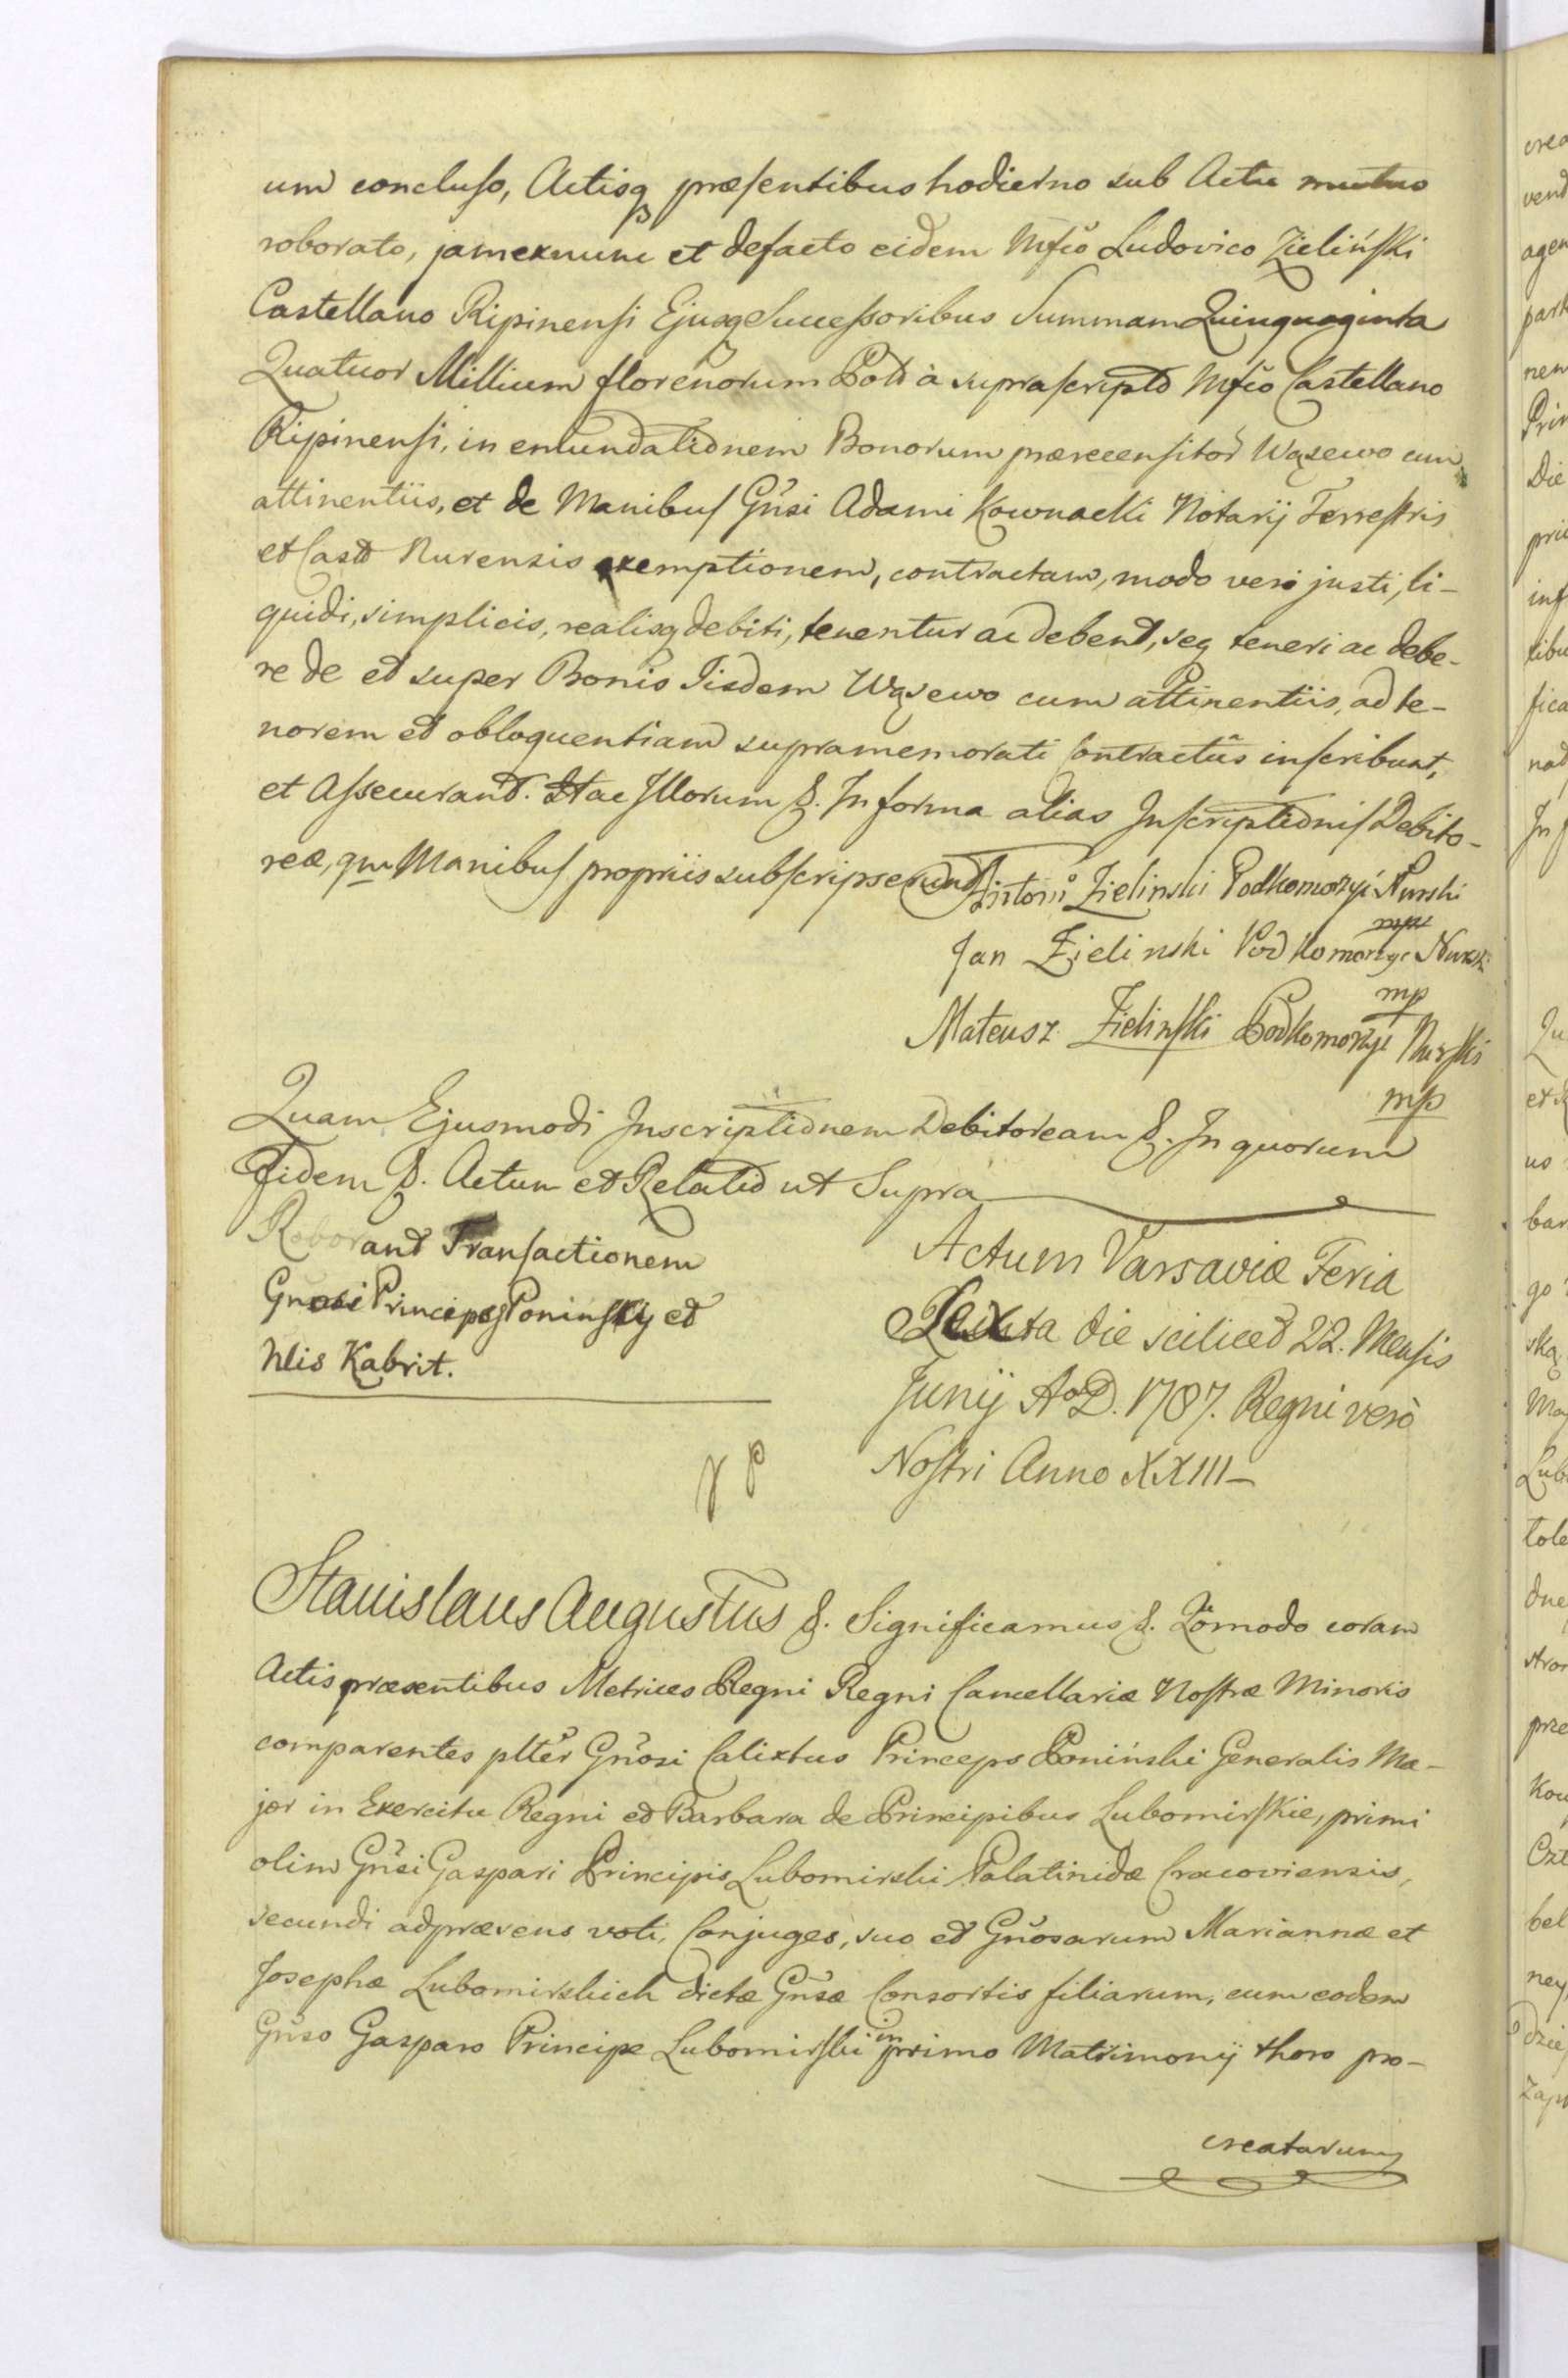 um concluso, Actisq præsentibus hodierno sub Actu mutuo
roborato, jamexnunc et defacto eidem Mfco Ludovico Zieliński
Castellano Ripinensi Ejusq Successoribus Summam Quinquaginta
Quatuor Millium florenorum Pold à suprascripto Mfco Castellano
Ripinensi, in emundationem Bonorum præcensitor Wąsewo cum
attinentiis, et de Manibus Gnsi Adami Kownacki Notarij Terrestris
et Castr Nurensis exemptionem, contractam, modo verò justi, li-
quidi, simplicis, realisq debiti, tenentur ac debent, seq teneri ac debe-
re de et super Bonis Iisdem Wąsewo cum attinentiis, ad te-
norem et obloquentiam supramemorati Contractûs inscribunt,
et Assecurant. Hac Illorum &. In forma alias Inscriptionis Debito-
reæ, qm Manibus propriis subscripserunt Antoni Zielinski Podkomorzyć Nurski
mp
Jan Zielinski Podkomorzyc Nurski
mp
Mateusz Zielinski Podkomorzyc Nurski
mp
Quam Ejusmodi Inscriptionem Debitoream &. In quorum
Fidem &. Actum et Relatio ut Supra
Roborant Transactionem
Gnosi Princeps Poninskij et
Nlis Kabrit.
Actum Varsaviæ Feria
Sexta die scilicet 22. Mensis
Junij AoD. 1787. Regni verò
Nostri Anno XXIII
Stanislaus Augustus &. Significamus &. Qōmodo coram
Actis præsentibus Metrices Regni Regni Cancellariæ Nostræ Minoris
comparentes plter Gnosi Calixtus Princeps Poniński Generalis Ma-
jor in Exercitu Regni et Barbara de Principibus Lubomirskie, primi
olim Gnsi Gaspari Principis Lubomirski Palatinidæ Cracoviensis,
secundi adpræsens voti, Conjuges, suo et Gnosarum Mariannæ et
Josephæ Lubomirskich dictæ Gnsæ Consortis filiarum, cum eodem
Gnso Gasparo Principe Lubomirski in primo Matrimonij thoro pro-
creatarum